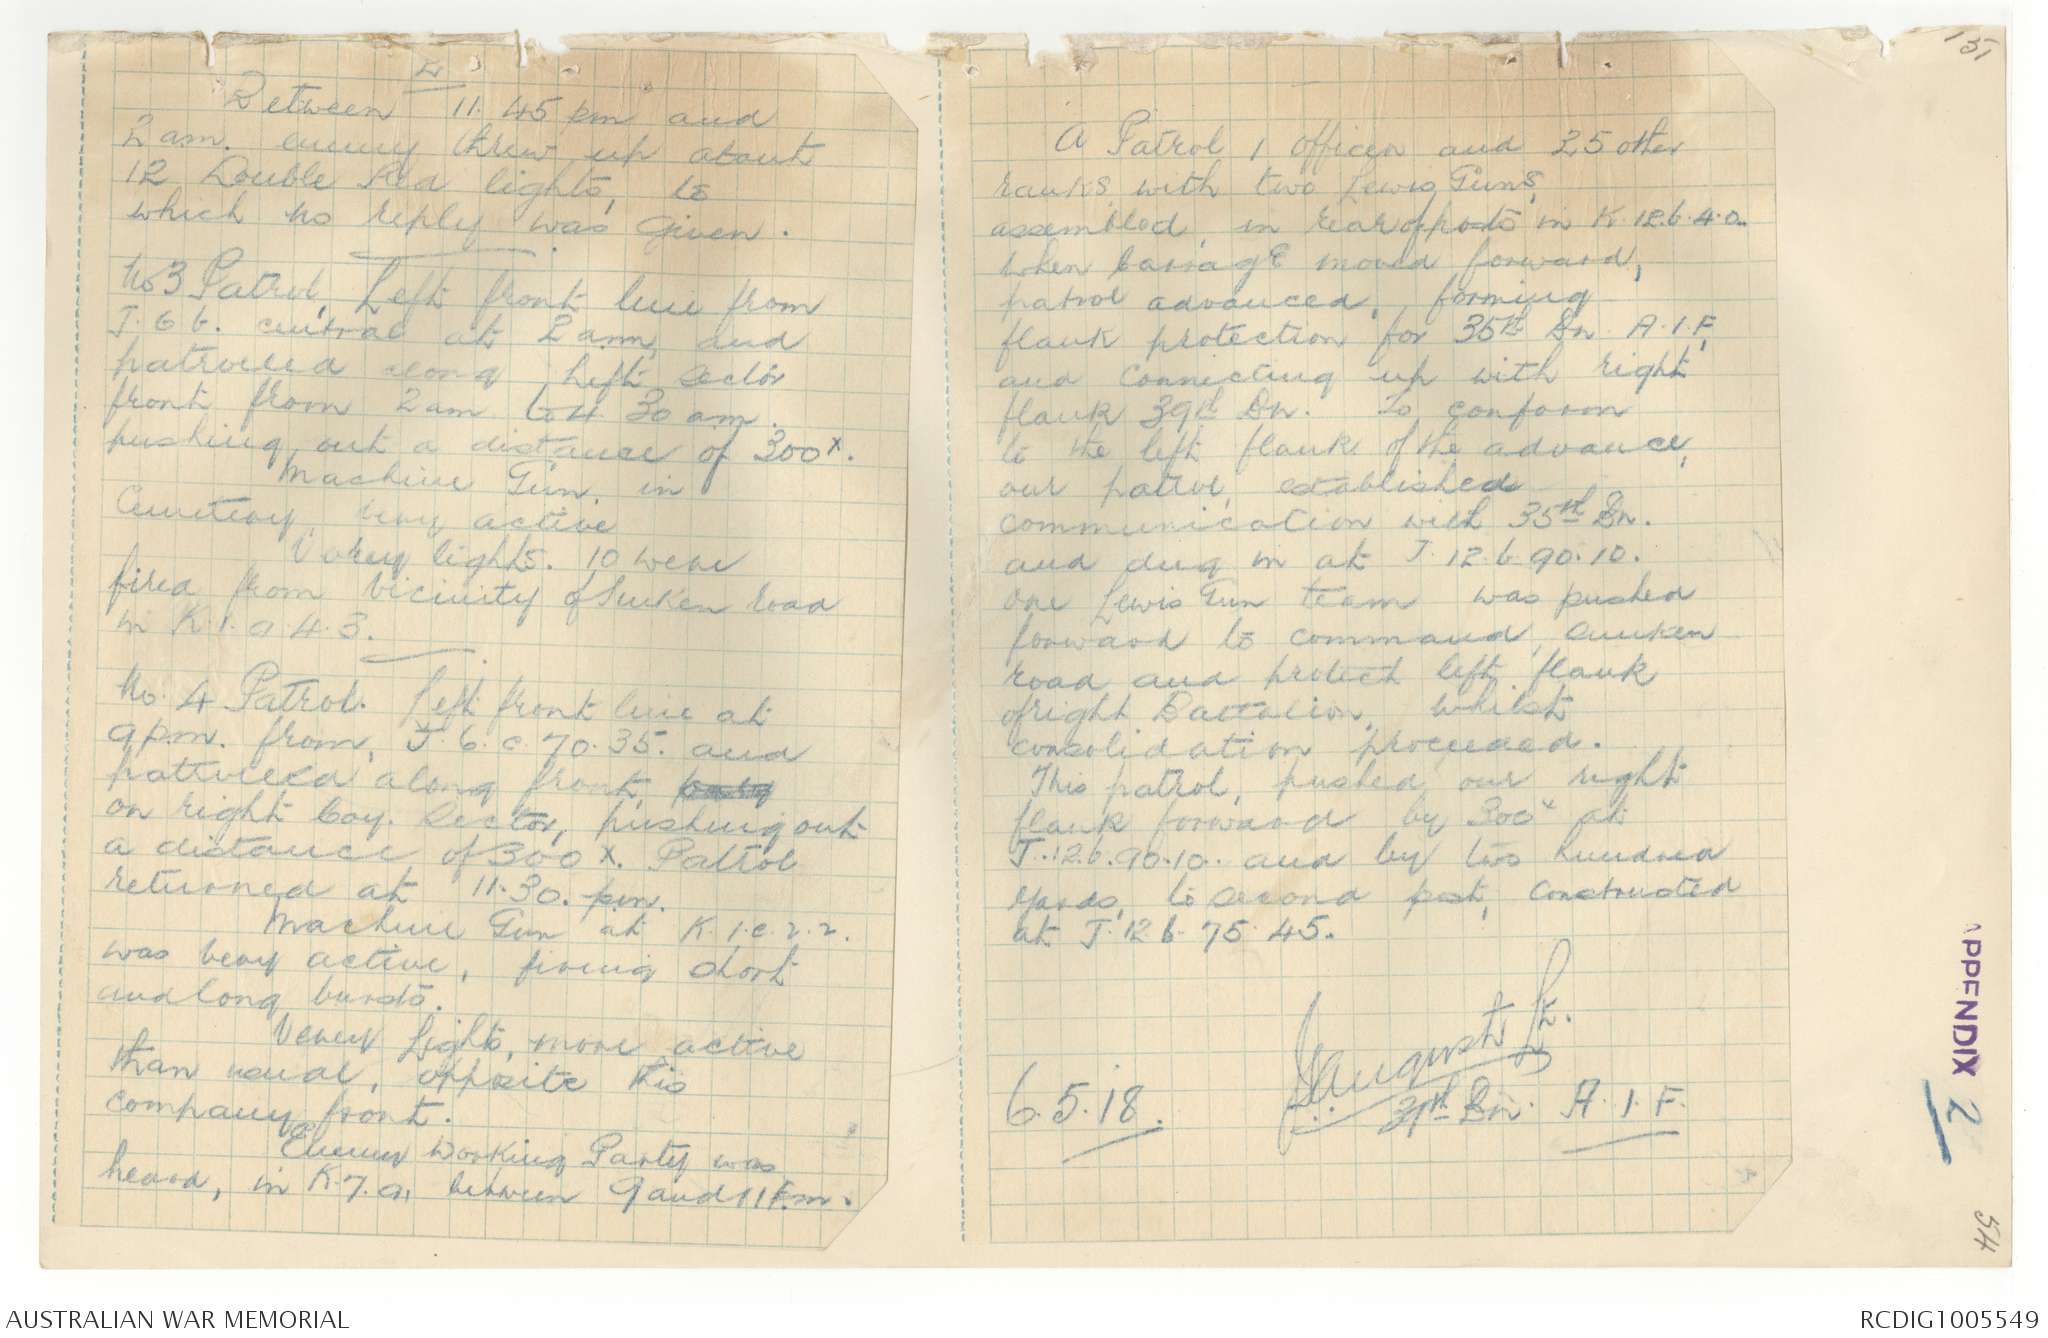 2
Between 11.45 pm and
2 am. enemy threw up about
12 Double Red lights, to
which no reply was given.
No 3 Patrol, Left front line from
J.6.b. central at 2 am, and
patrolled along Left Sector
front from 2 am to 4.30 am.
pushing out a distance of 300x.
Machine Gun, in
Cemetery, very active
Verey lights. 10 were
fired from vicinity of Sunken road
in K.1.a.4.3.
No. 4 Patrol. Left front line at
9 pm. from, J.6.c.70.35. and
patrolled along front,
on right Coy. Sector, pushing out
a distance of 300x. Patrol
returned at 11.30. pm.
Machine Gun at K.1.c.2.2.
was very active, firing short
and long bursts.
Verey Lights, more active
than usual, opposite this
company front.
Enemy Working Party was
heard, in K.7.a, between 9 and 11 P.m.
A Patrol 1 officer and 25 other
ranks, with two Lewis Guns,
assembled, in rear of posts in K.12.b.4.0.
when barrage moved forward,
patrol advanced, forming
flank protection for 35th Bn. A.I.F,
and connecting up with right
flank 39th Bn. To conform
to the left flank of the advance,
our patrol, established
communication with 35th Bn.
and dug in at J.12.b.90.10.
One Lewis Gun team was pushed
forward to command, sunken
road and protect left flank
of right Battalion, whilst
consolidation proceeded.
This patrol, pushed our right
flank forward by 300x at
J.12.b.90.10.. and by two hundred
yards, to second post, constructed
at J.12.b.75.45.
August Lt.
6.5.18. 37th Bn. A.I.F.
151
APPENDIX 2
54
AUSTRALIAN WAR MEMORIAL
RCDIG1005549